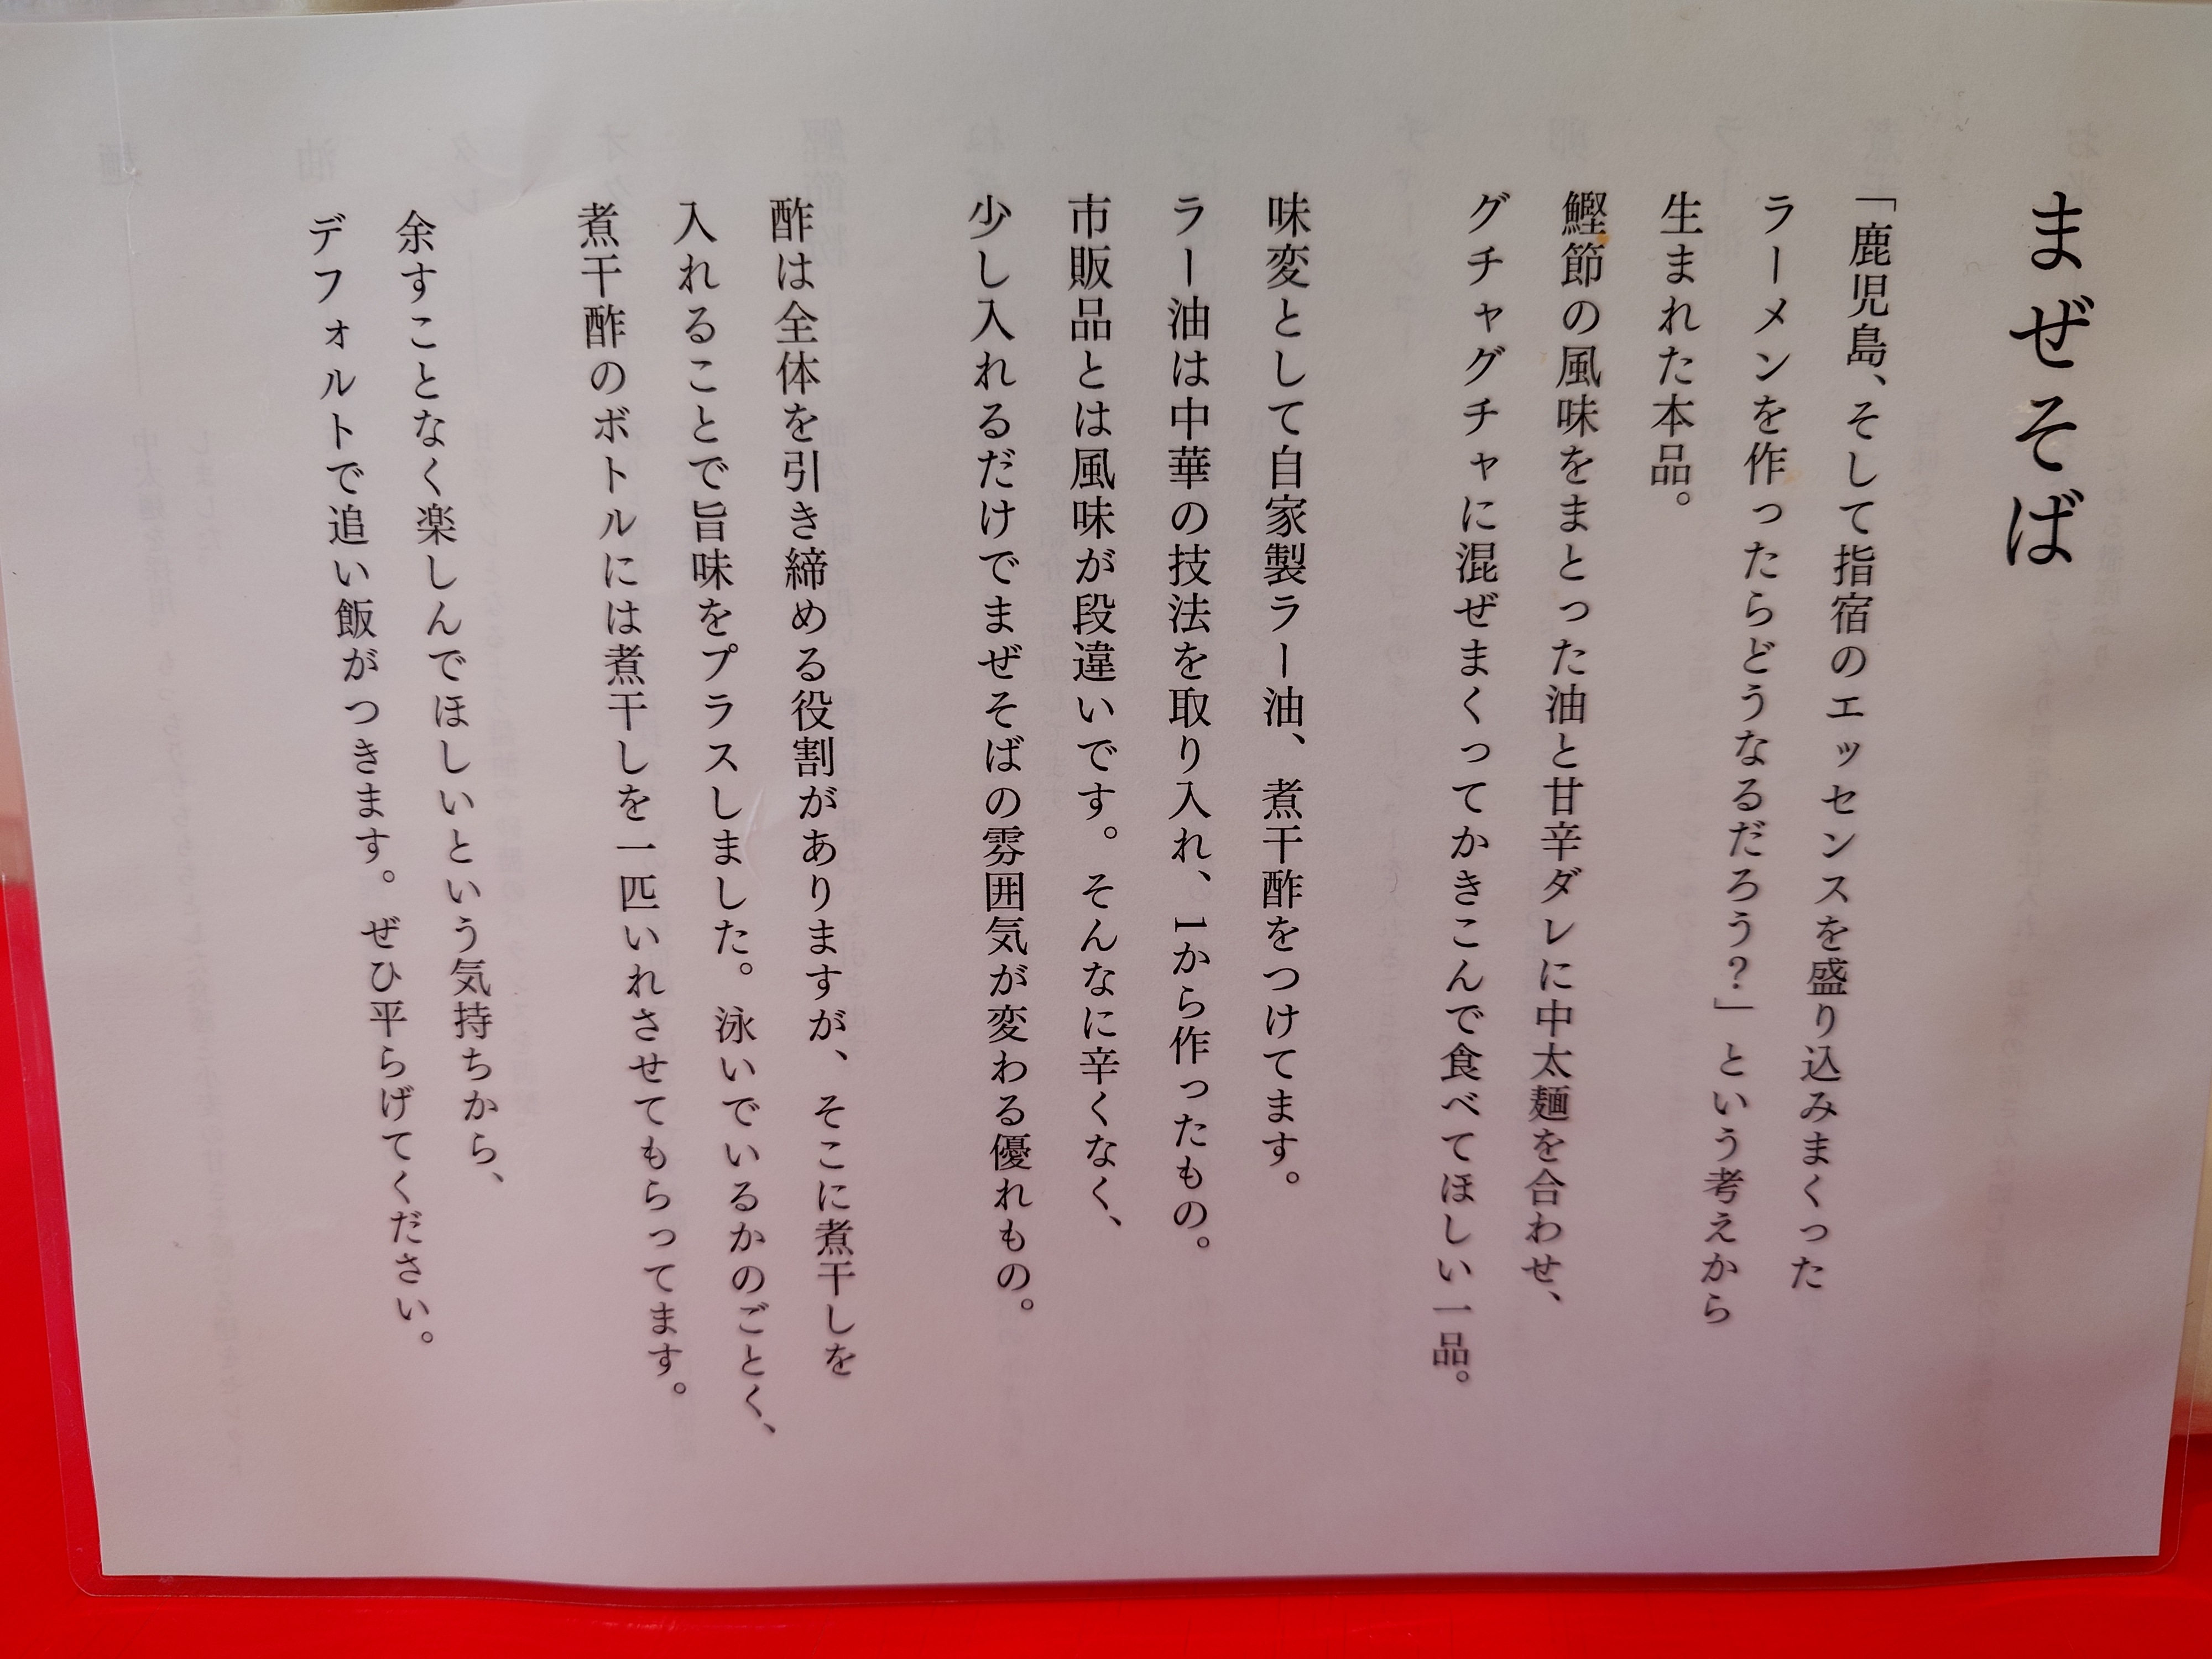 まぜそば
「鹿児島、そして指宿のエッセンスを盛り込みまくった
ラーメンを作ったらどうなるだろう？」という考えから
生まれた本品。
鰹節の風味をまとった油と甘辛ダレに中太麺を合わせ、
グチャグチャに混ぜまくってかきこんで食べてほしい一品。
味変として自家製ラー油、煮干酢をつけてます。
ラー油は中華の技法を取り入れ、1から作ったもの。
市販品とは風味が段違いです。そんなに辛くなく、
少し入れるだけでまぜそばの雰囲気が変わる優れもの。
酢は全体を引き締める役割がありますが、そこに煮干しを
入れることで旨味をプラスしました。泳いでいるかのごとく、
煮干酢のボトルには煮干しを一匹いれさせてもらってます。
余すことなく楽しんでほしいという気持ちから、
デフォルトで追い飯がつきます。ぜひ平らげてください。